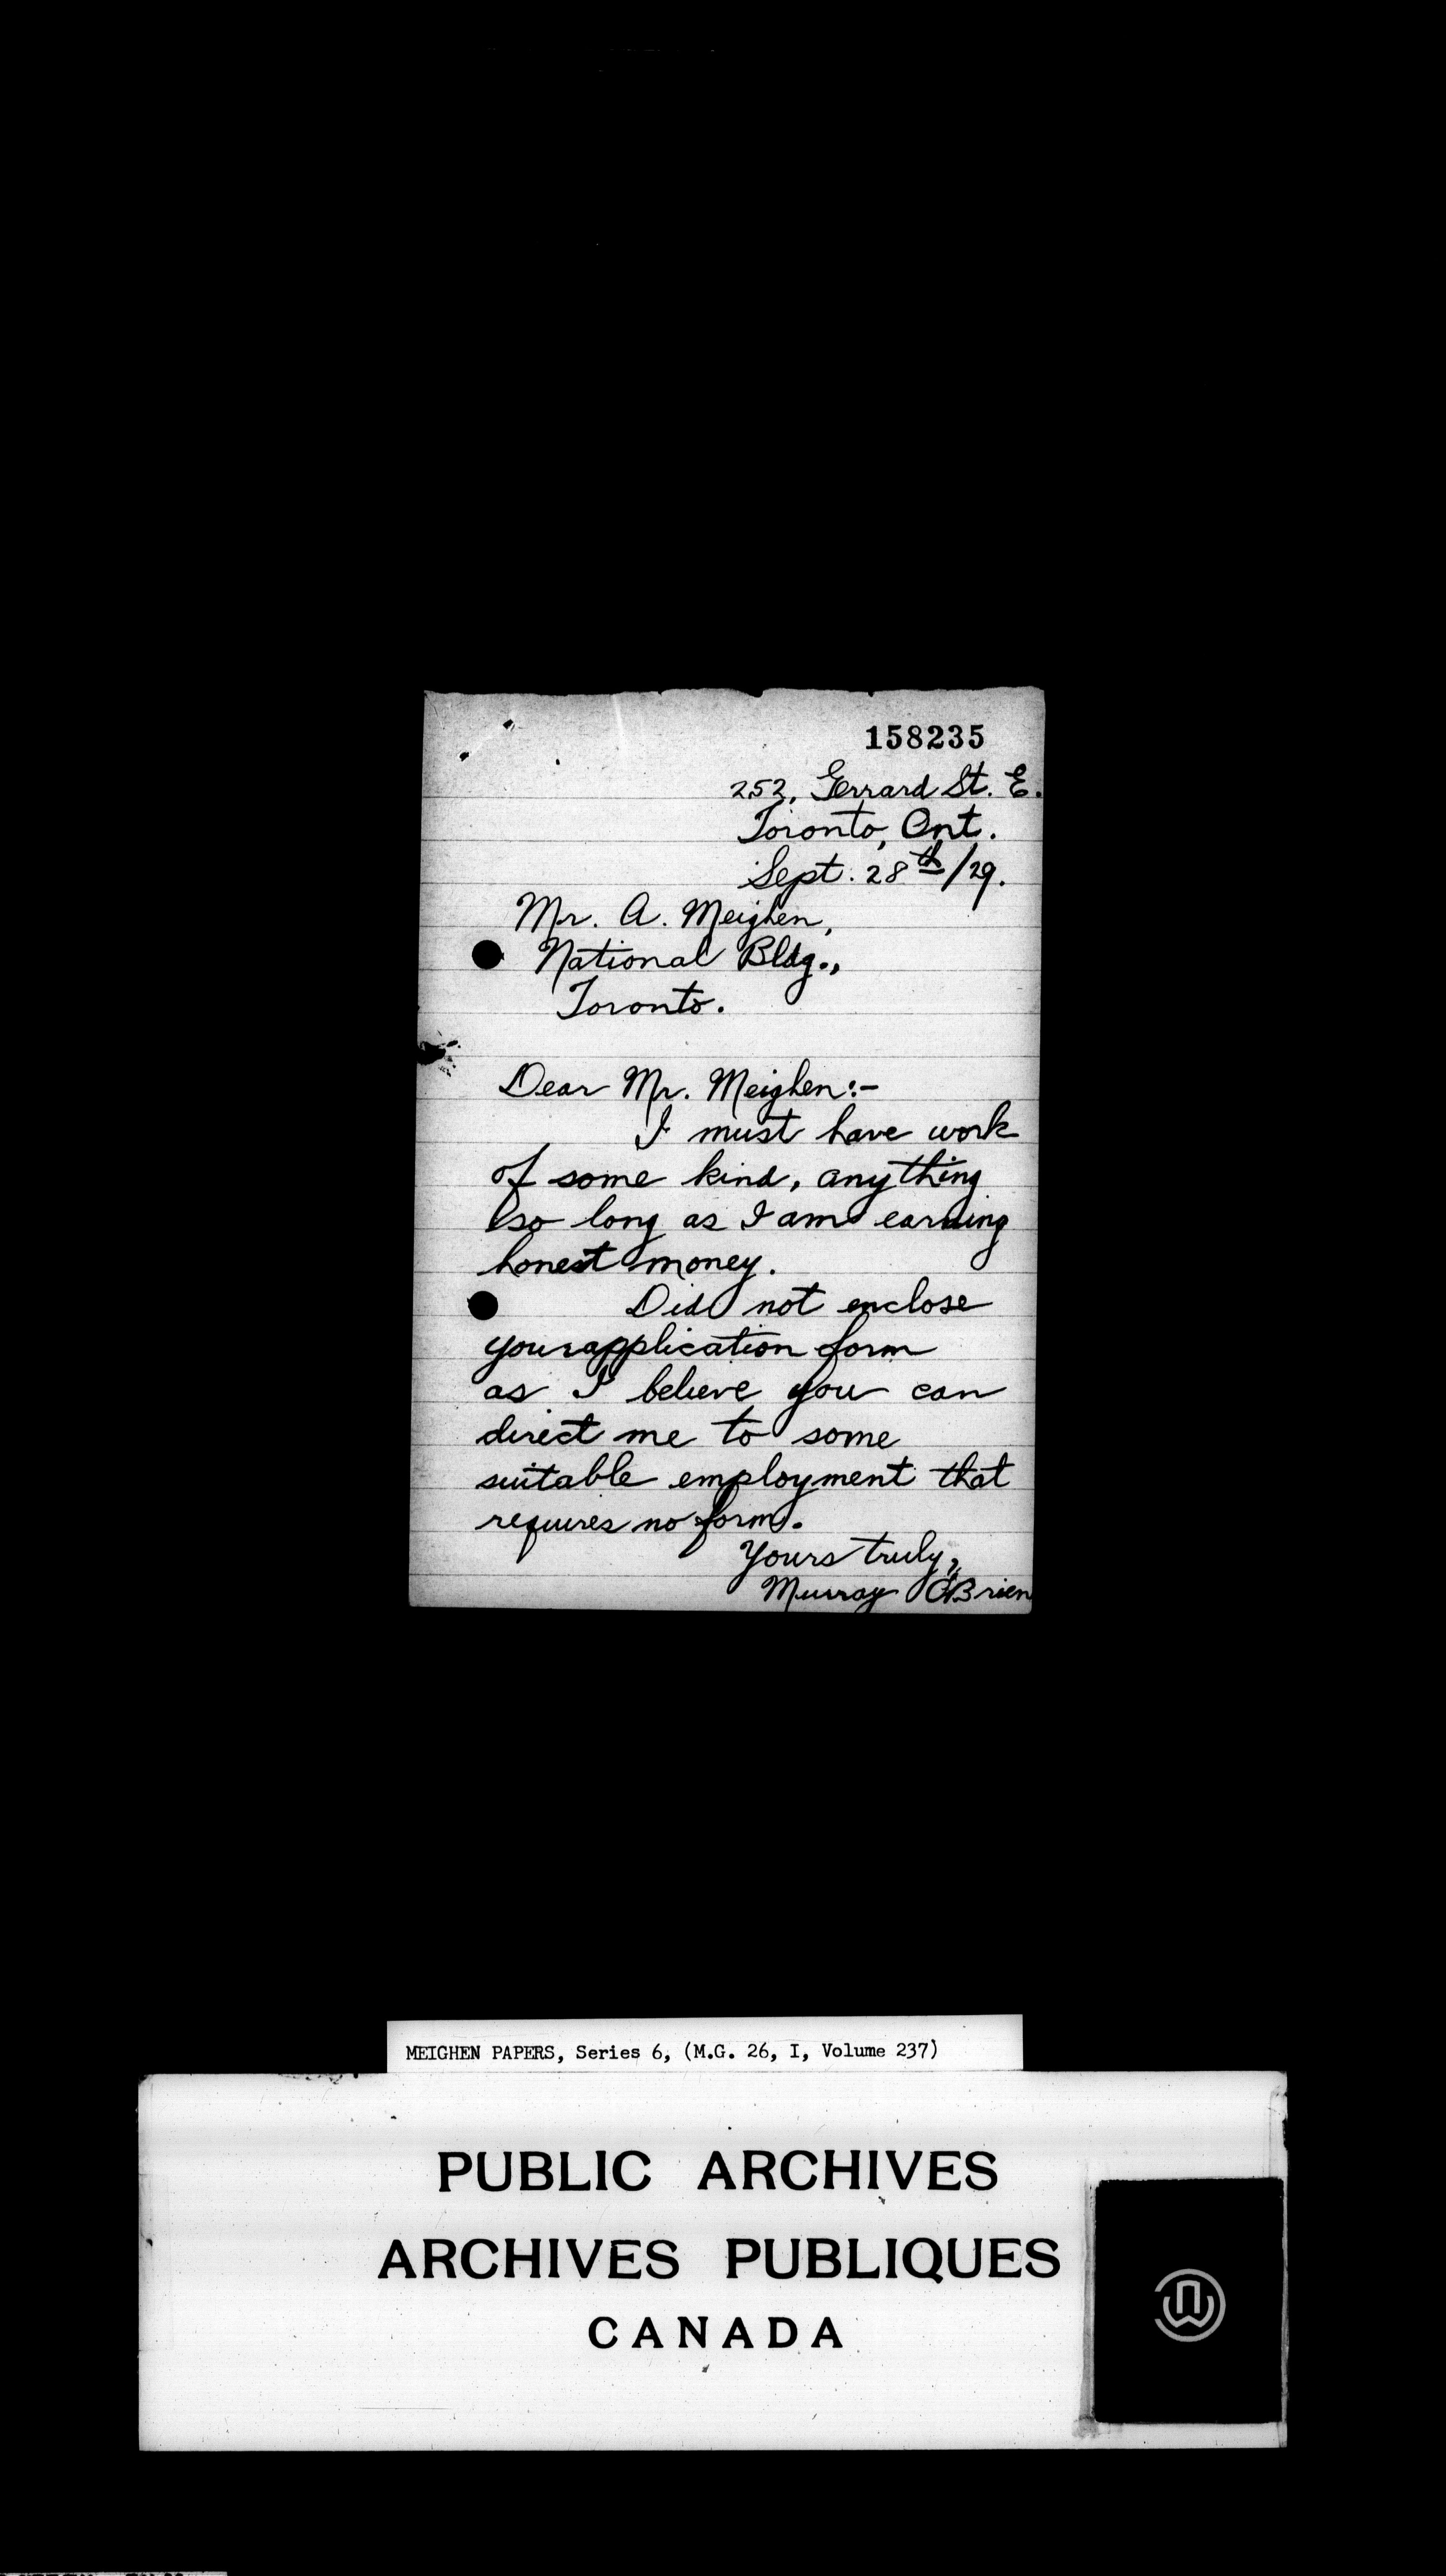 158235
252, Gerrard St. E.
Toronto, Ont.
Sept. 28th/29.
Mr. A. Meighen,
National Bldg.,
Toronto.
Dear Mr. Meighen:-
I must have work
of some kind, anything
so long as I am earning
honest money.
Did not enclose
your application form
as I believe you can
direct me to some
suitable employment that
requires no form.
Yours truly,
Murray O'Brien
MEIGHEN PAPERS, Series 6, (M.G. 26, I, Volume 237)
PUBLIC ARCHIVES
ARCHIVES PUBLIQUES
CANADA